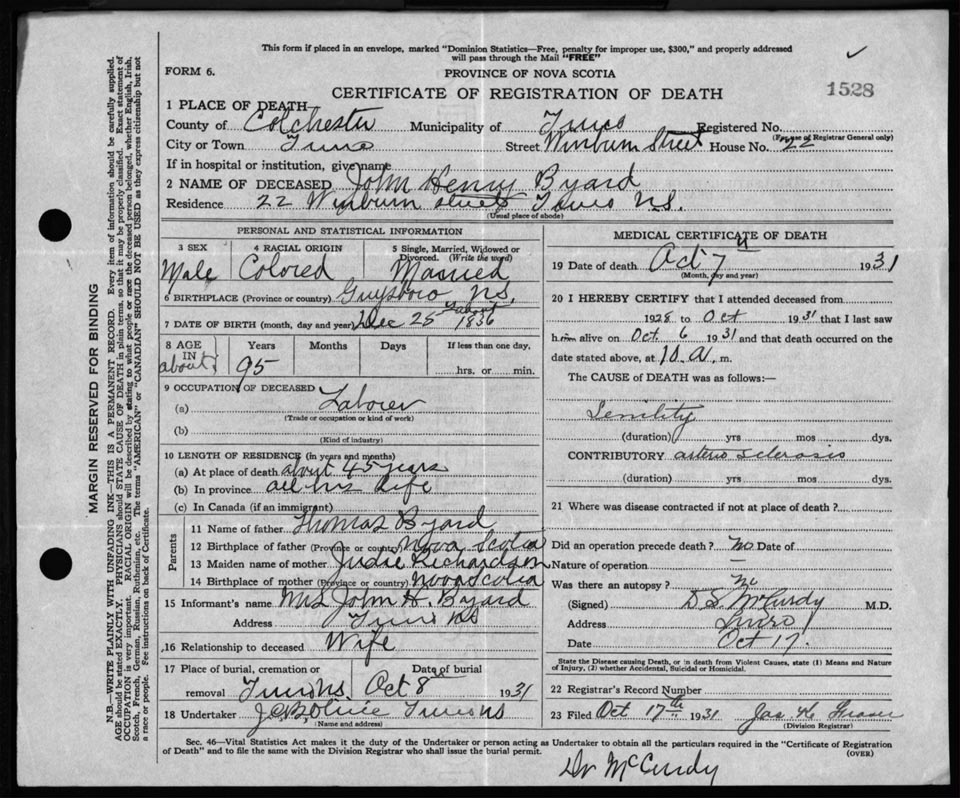 This form if placed in an envelope, marked "Dominion Statistics—Free, penalty for improper use, $300," and properly addressed
will pass through the Mail "FREE"
FORM 6.
PROVINCE OF NOVA SCOTIA
CERTIFICATE OF REGISTRATION OF DEATH
1528
1 PLACE OF DEATH
County of Colchester Municipality of Truro Registered No.
(For use of Registrar General only)
City or Town Truro Street Winburn Street House No. 22
If in hospital or institution, give name
2 NAME OF DECEASED John Henry Byard
Residence 22 Winburn street Truro N.S.
(Usual place of abode)
PERSONAL AND STATISTICAL INFORMATION
3 SEX 4 RACIAL ORIGIN 5 Single, Married, Widowed or Divorced. (Write the word)
Male Colored Married
6 BIRTHPLACE (Province or country) Guysboro N.S.
7 DATE OF BIRTH (month, day and year) Dec 25 about 1836
8 AGE IN Years Months Days If less than one day,
about 95 hrs. or min.
9 OCCUPATION OF DECEASED
(a) Laborer
(Trade or occupation or kind of work)
(b)
(Kind of industry)
10 LENGTH OF RESIDENCE (in years and months)
(a) At place of death about 45 years
(b) In province all his life
(c) In Canada (if an immigrant)
Parents
11 Name of father Thomas Byard
12 Birthplace of father (Province or country) Nova Scotia
13 Maiden name of mother Judie Richardson
14 Birthplace of mother (Province or country) Nova Scotia
15 Informant's name Mrs John H. Byard
Address Truro N.S.
16 Relationship to deceased Wife
17 Place of burial, cremation or Date of burial
removal Truro N.S. Oct 8th 1931
18 Undertaker Truro N.S.
(Name and address)
MEDICAL CERTIFICATE OF DEATH
19 Date of death Oct 7 1931
(Month, day and year)
20 I HEREBY CERTIFY that I attended deceased from
1928 to Oct 1931 that I last saw
him alive on Oct 6 1931 and that death occurred on the
date stated above, at 10.a. m.
The CAUSE of DEATH was as follows:—
Senility
(duration) yrs mos dys.
CONTRIBUTORY arterio sclerosis
(duration) yrs mos dys.
21 Where was disease contracted if not at place of death?
Did an operation precede death? no Date of
Nature of operation —
Was there an autopsy? no
(Signed) D S McCurdy M.D.
Address Truro
Date Oct 17.
State the Disease causing Death, or in death from Violent Causes, state (1) Means and Nature
of Injury, (2) whether Accidental, Suicidal or Homicidal.
22 Registrar's Record Number
23 Filed Oct 17th 1931 Jas K Fraser
(Division Registrar)
Sec. 46—Vital Statistics Act makes it the duty of the Undertaker or person acting as Undertaker to obtain all the particulars required in the "Certificate of Registration
of Death" and to file the same with the Division Registrar who shall issue the burial permit. (OVER)
Dr McCurdy
MARGIN RESERVED FOR BINDING
N.B.—WRITE PLAINLY WITH UNFADING INK—THIS IS A PERMANENT RECORD. Every item of information should be carefully supplied.
AGE should be stated EXACTLY. PHYSICIANS should STATE CAUSE OF DEATH in plain terms, so that it may be properly classified. Exact statement of
OCCUPATION is very important. RACIAL ORIGIN will be described by stating to what people or race the deceased person belonged, whether English, Irish,
Scotch, French, German, Russian, Ruthenian, etc. The terms "AMERICAN" or "CANADIAN" SHOULD NOT BE USED as they express citizenship but not
a race or people. Fee instructions on back of Certificate.